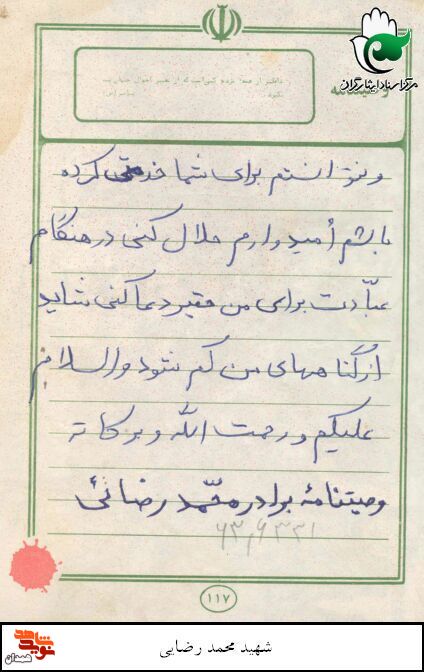 مرکز اسناد ایثارگران
وصیتنامه
غافلتر از همه مردم کسی است که از تغییر احوال جهان پند
نگیرد
و نتوانستم برای شما خدمتی کرده
باشم امیدوارم حلال کنی در هنگام
عبادت برای من حقیر دعا کنی شاید
از گناههای من کم شود والسلام
علیکم و رحمت الله و برکاته
وصیتنامهٔ برادر محمد رضائی
۱۱۷
شهید محمد رضایی
نوید شاهد
همدان